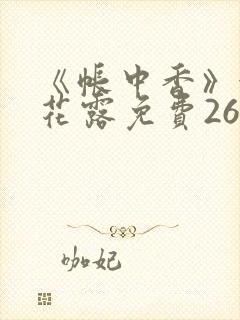 《帳中香》
花露免費26
咖妃